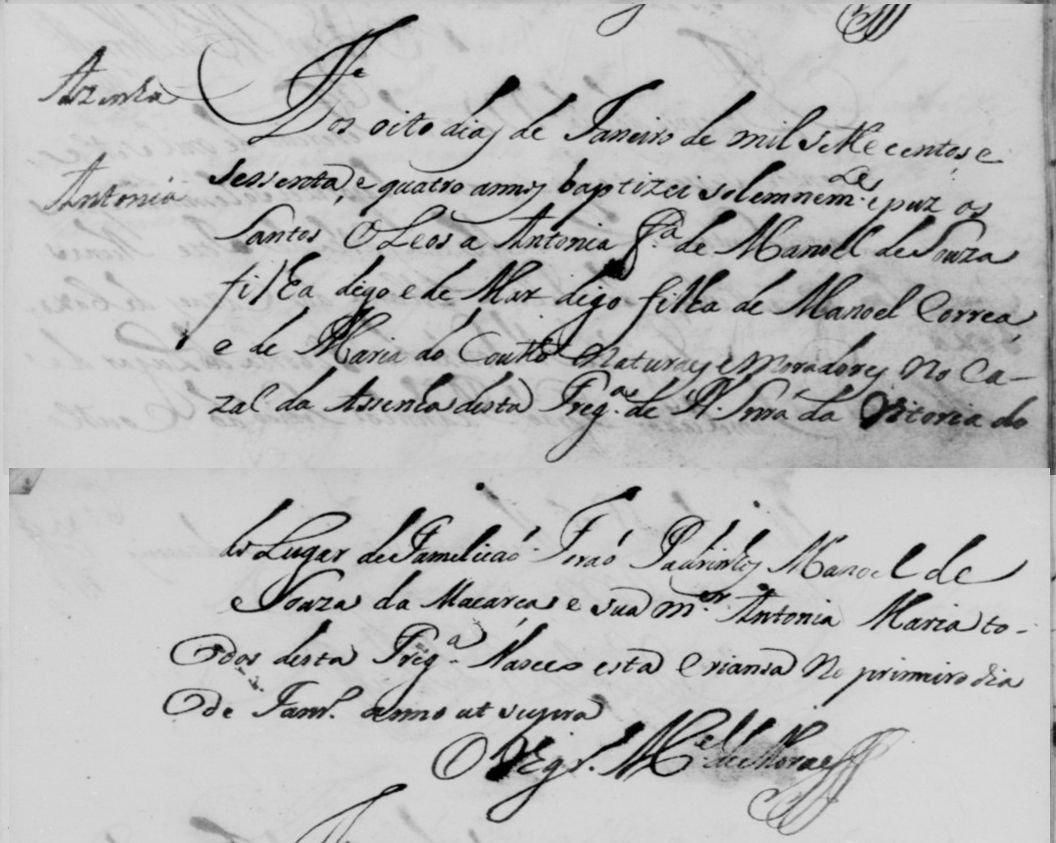 Azenha
Antonia
Aos oito dias de Janeiro de mil settecentos e
sessenta, e quatro annos baptizei solemnem.te e puz os
Santos Oleos a Antonia f.a de Manoel de Souza
filha digo e de Mar digo filha de Manoel Correa
e de Maria do Couto Naturaes e Moradores No Ca-
zal da Assenha desta Freg.a de N. Snra da Vitoria do
do Lugar de Famelicaó Foraó Padrinhos Manoel de
Souza da Macarca e sua m.er Antonia Maria to-
dos desta Freg.a Nasceo esta Criansa No primeiro dia
de Janr.o anno ut supra
O Vigr.o M.el de Moraes